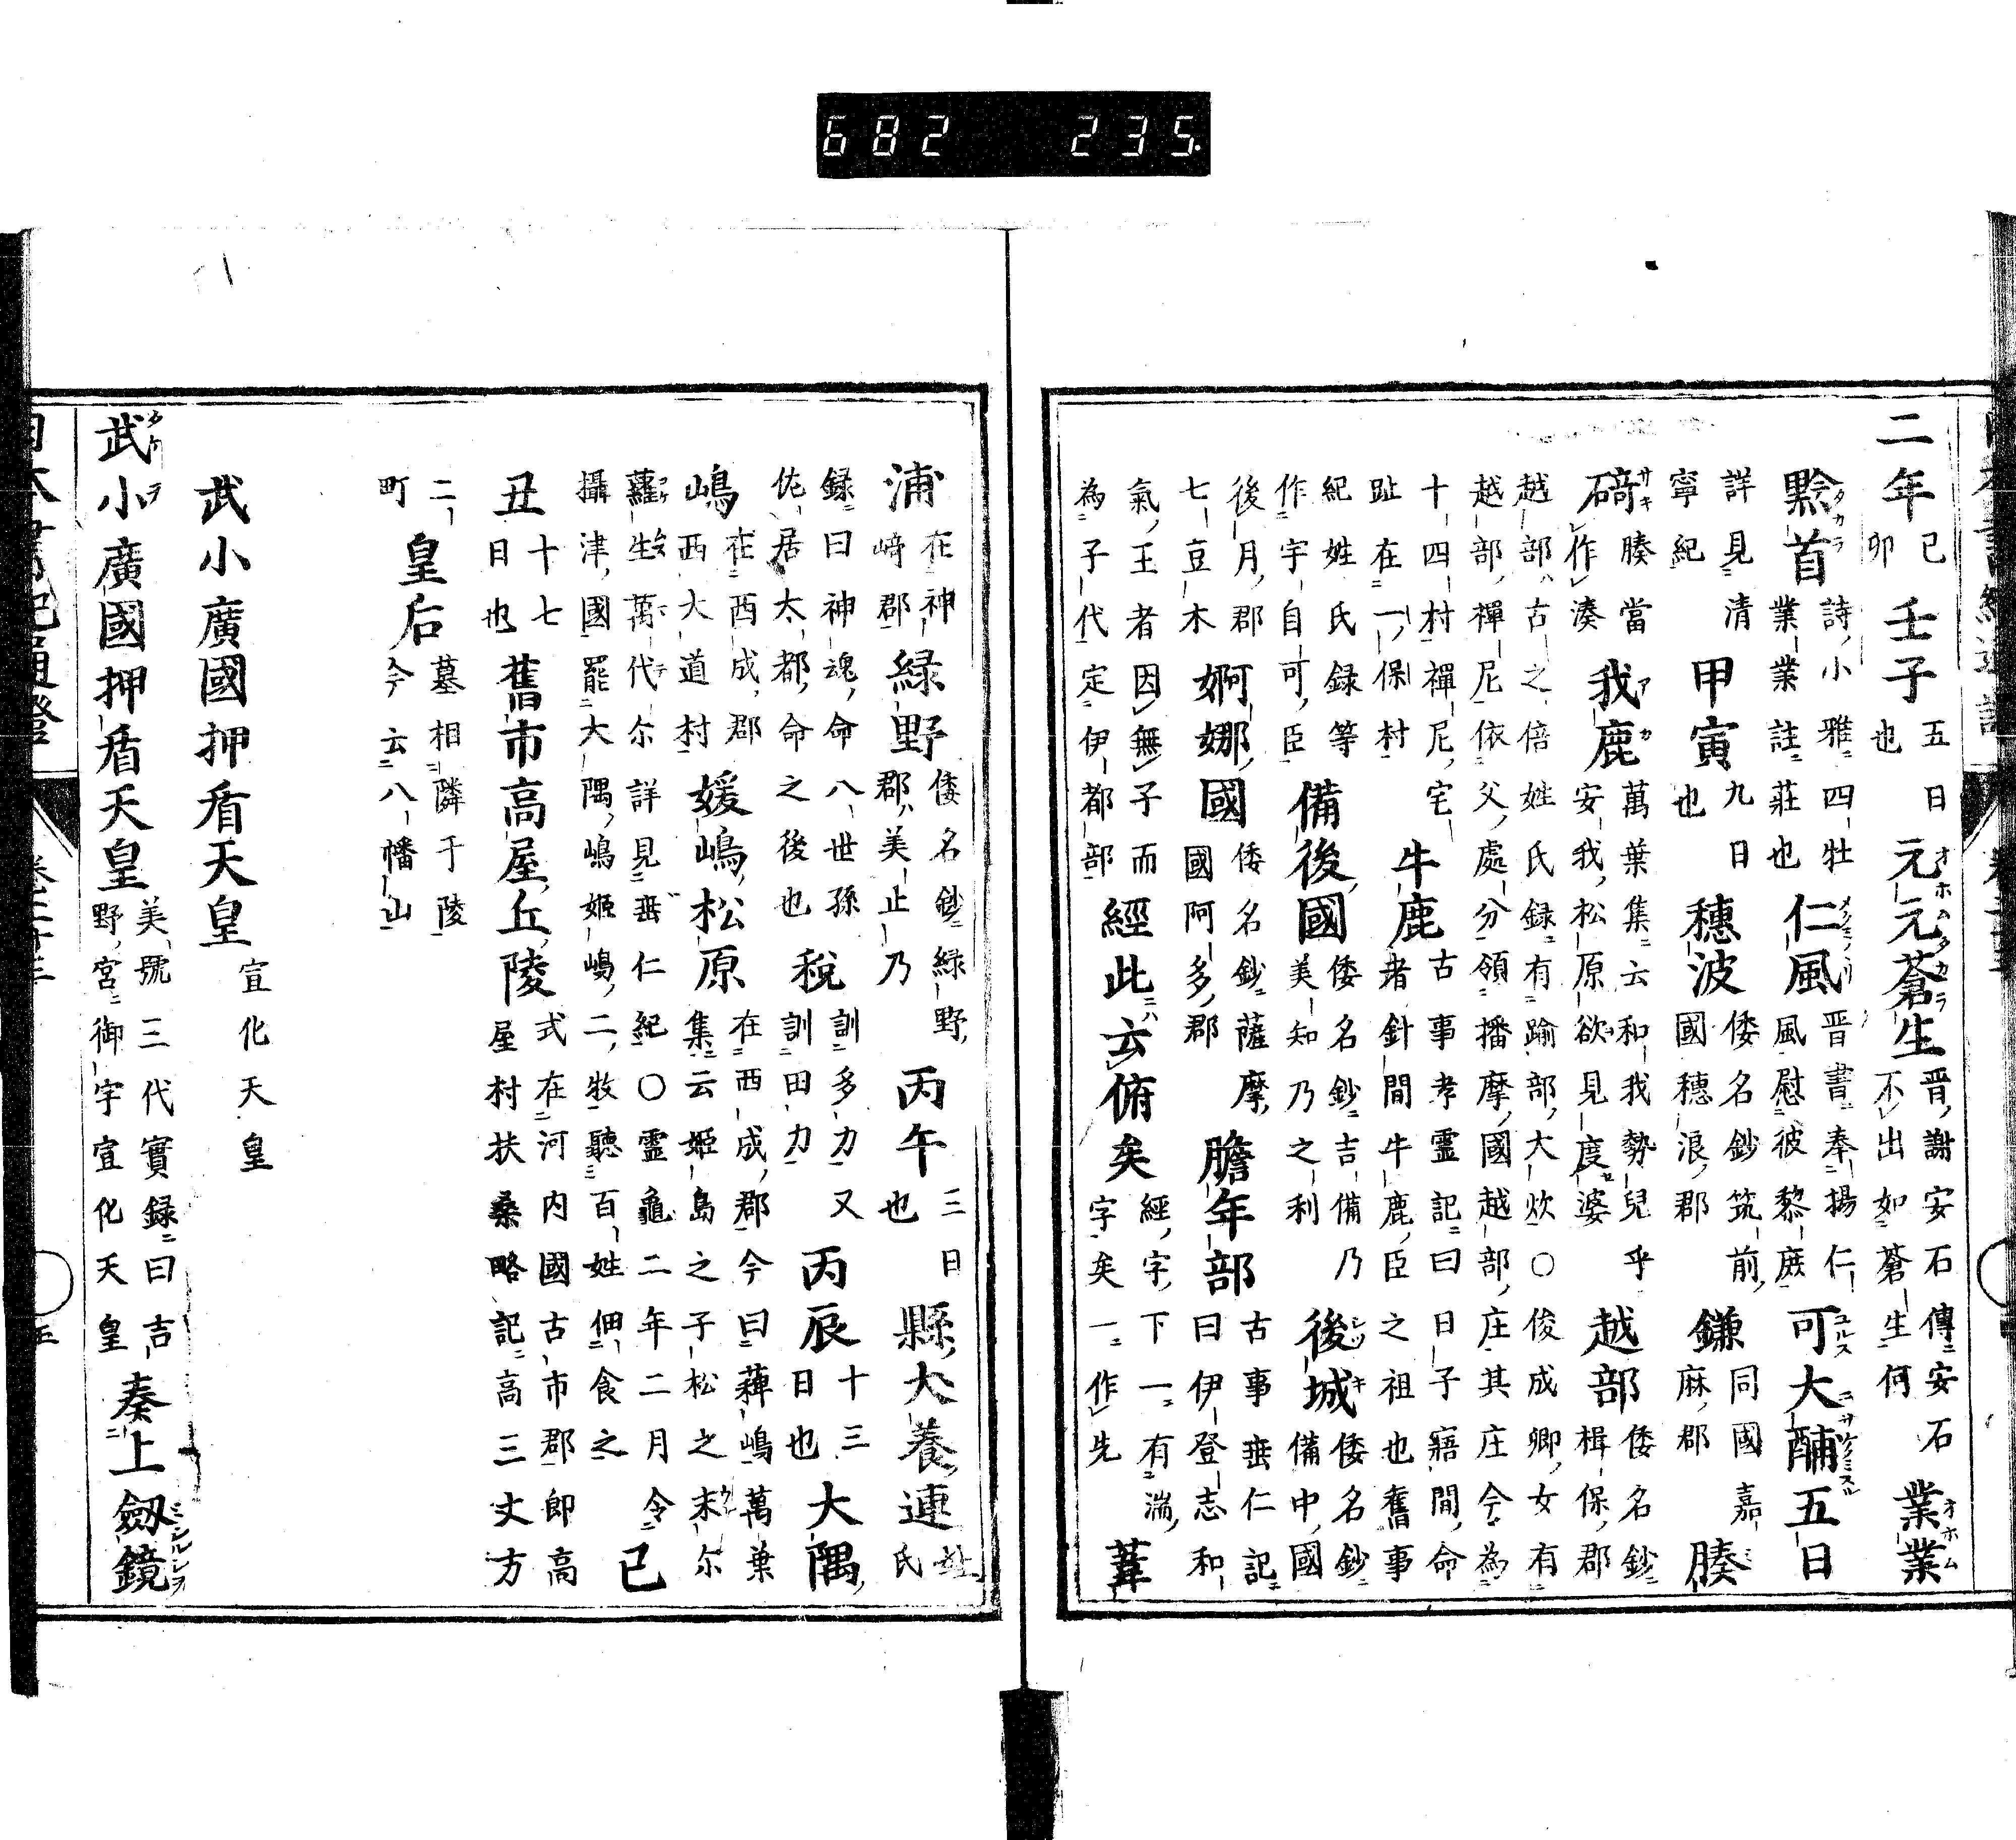 682 235
二年己卯壬子五日也元元蒼生晋謝安石傳安石不出如蒼生何業業
黔首詩小雅四牡業業註莊也仁風晋書奉揚仁風慰彼黎庶可大酺五日
詳見清寧紀甲寅九日也穂波倭名鈔筑前國穂浪郡鎌同國嘉麻郡腠
碕腠當作湊我鹿萬葉集云和我勢兒乎安我松原欲見度婆越部倭名鈔揖保郡
越部古之倍姓氏録有踰部大炊〇俊成卿女有
越部禪尼依父處分領播摩國越部庄其庄今為
十四村禪尼宅趾在一保村牛鹿古事孝霊記曰日子寤間命者針間牛鹿臣之祖也舊事
紀姓氏録等作宇自可臣備後國倭名鈔吉備乃美知乃之利後城倭名鈔備中國
後月郡七豆木婀娜國倭名鈔薩摩國阿多郡膽年部古事垂仁記曰伊登志和
氣王者因無子而為子代定伊都部經此云俯矣經字下一有湍字矣一作先葦
浦在神﨑郡緑野倭名鈔緑野郡美止乃丙午三日也縣犬養連姓氏
録曰神魂命八世孫佐居太都命之後也税訓多力又訓田力丙辰十三日也大隅
嶋在西成郡西大道村媛嶋松原在西成郡今曰薭嶋萬葉集云姫島之子松之末尓
蘿生萬代尓詳見垂仁紀〇霊龜二年二月令
攝津國罷大隅嶋姫嶋二牧聽百姓佃食之己
丑十七日也舊市高屋丘陵式在河内國古市郡即高屋村扶桑略記高三丈方
二町皇后墓相隣于陵今云八幡山
武小廣國押盾天皇宣化天皇
武小廣國押盾天皇美號三代實録曰吉野宮御宇宣化天皇奏上劔鏡